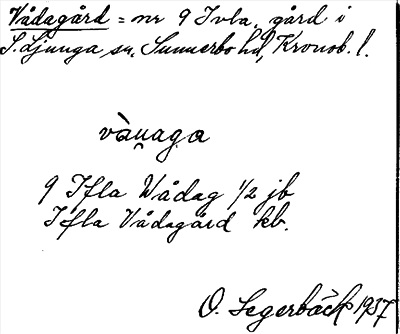 Vådagård = nr 9 Ivla, gård i
S. Ljunga sn, Sunnerbo hd, Kronob. l.
vànaga
9 Ifla Wådag 1/2 jb
Ifla Vådagård kb.
O. Segerbäck 1937